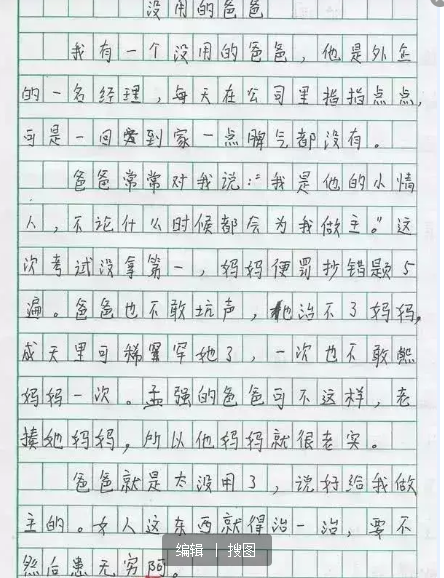 没用的爸爸
我有一个没用的爸爸,他是外企
的一名经理,每天在公司里指指点点,
可是一回到家一点脾气都没有。
爸爸常常对我说:“我是他的小情
人,不论什么时候都会为我做主。”这
次考试没拿第一,妈妈便罚抄错题5
遍。爸爸也不敢坑声,他治不了妈妈,
成天里可稀罕她了,一次也不敢熊
妈妈一次。孟强的爸爸可不这样,老
揍她妈妈,所以他妈妈就很老实。
爸爸就是太没用了,说好给我做
主的。女人这东西就得治一治,要不
然后患无穷阿。
编辑 | 搜图